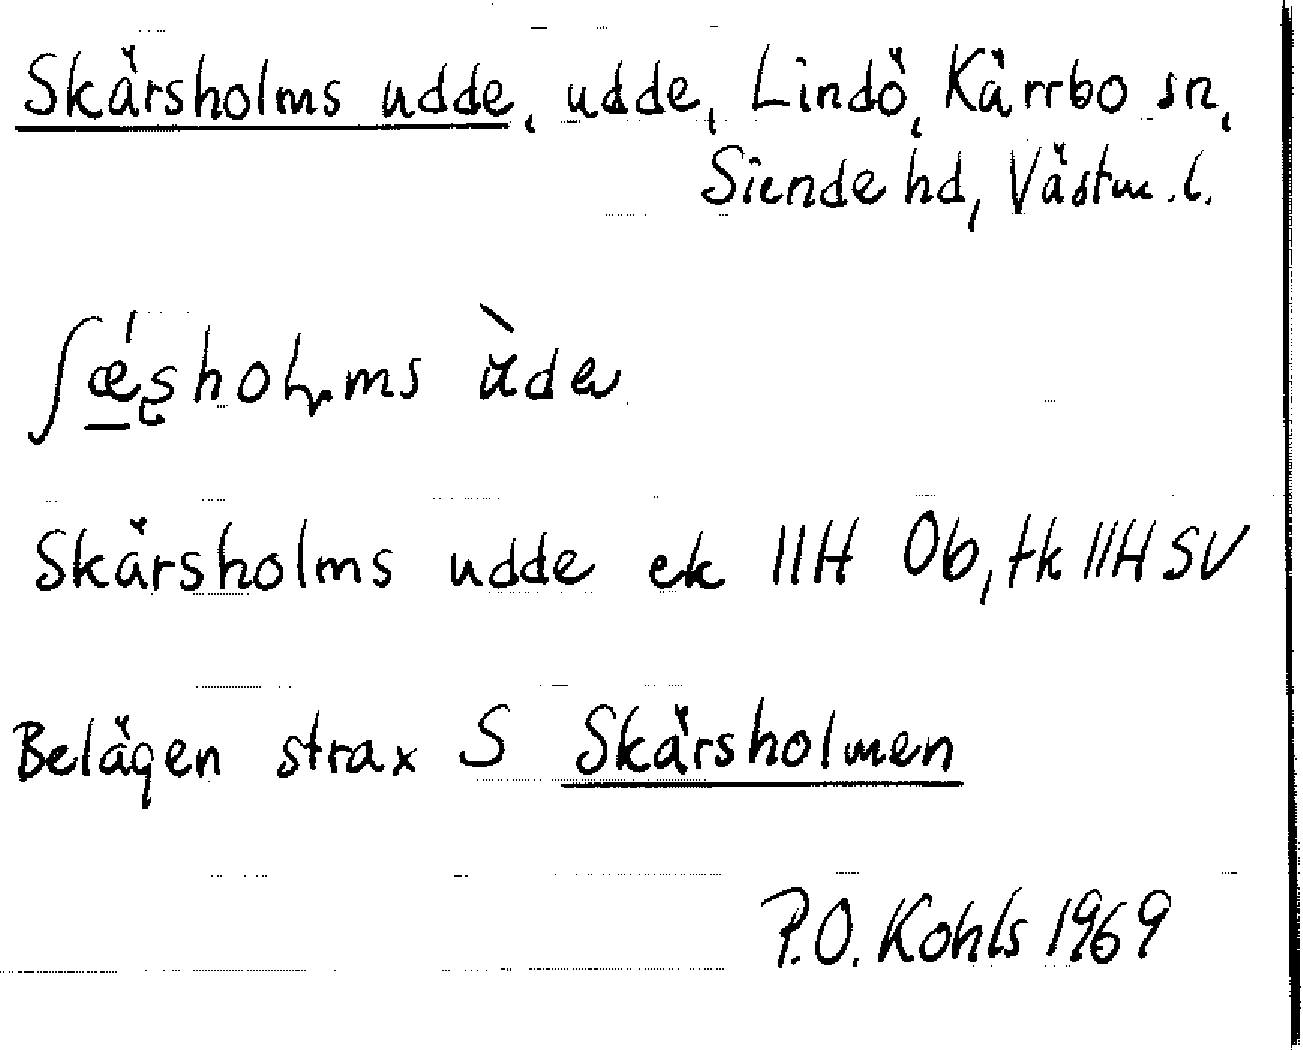 Skärsholms udde, udde, Lindö, Kärrbo sn,
Siende hd, Västm. l.
Skärsholms udde ek 11H 0b, tk 11H SV
Belägen strax S Skärsholmen
P.O. Kohls 1969